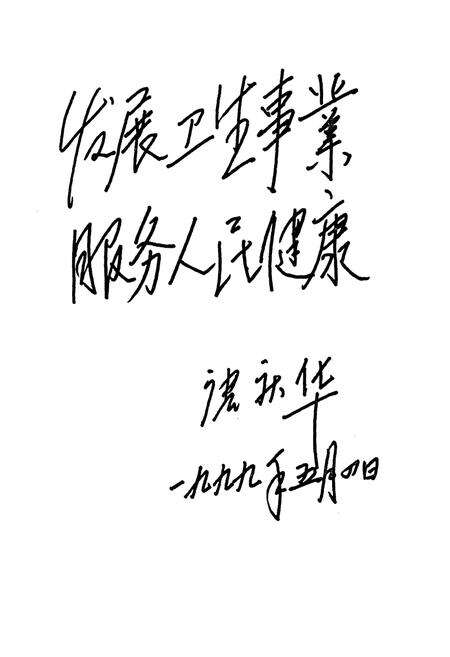 发展卫生事業
服务人民健康
华
一九九九年五月四日